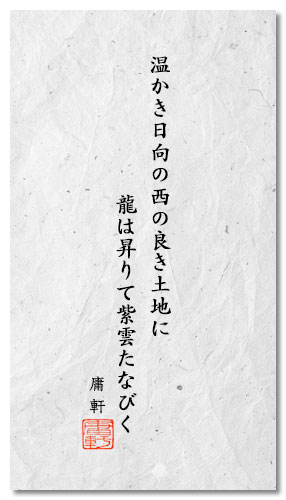 温かき日向の西の良き土地に
龍は昇りて紫雲たなびく
庸軒